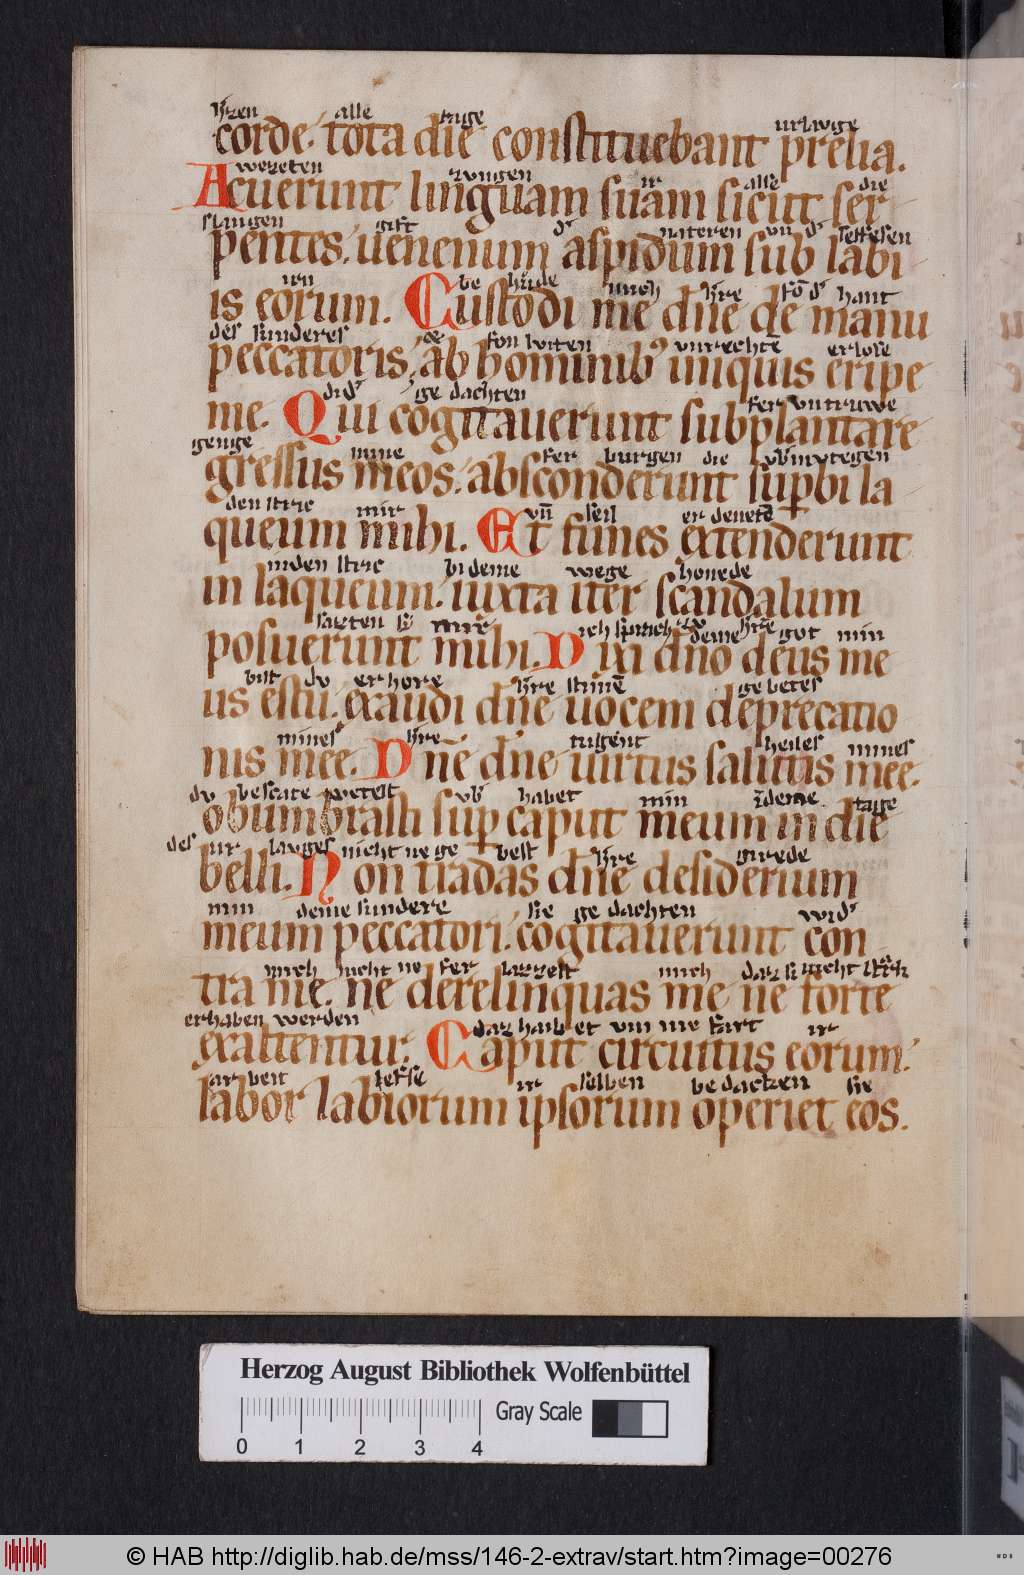 hʼzen alle tage urlouge
corde. tota die constituebant prelia.
wezeten zungen ir alse die
Acuerunt linguam suam sicut ser
slangen gift dʼ nateren vn dʼ leffesen
pentes. uenenum aspidum sub labi
irn be hude mich hʼre fō dʼ hant
is eorum. Custodi me dn̄e de manu
des sunderes fon luiten vnrechtē erlose
peccatoris. ab hominibꝰ iniquis eripe
didʼ ge dachten fer vntruwe
me. Qui cogitauerunt supplantare
genge mine fer burgen die vbʼmutegen
gressus meos. absconderunt suꝑbi la
den stric mir vn̄ seil er denetē
queum mihi. Et funes extenderunt
inden stric bi deme wege honede
in laqueum. iuxta iter scandalum
sazten si mir ich sprach zu deme hʼre got min
posuerunt mihi. Dixi dn̄o deus me
bist du erhore hʼre stimē gebetes
us es tu. exaudi dn̄e uocem deprecatio
mines hʼre tugent heiles mines
nis mee. Dn̄e dn̄e uirtus salutis mee.
du bescate wetest vbʼ habet min ī deme tage
obumbrasti suꝑ caput meum in die
des ur louges nicht ne ge best hʼre girede
belli. Non tradas dn̄e desiderium
min deme sundere sie ge dachten widʼ
meum peccatori. cogitauerunt con
mich nicht ne fer lazzest mich daz si nicht
tra me. ne derelinquas me ne forte
erhaben werden daz haibet vm me fart ir
exaltentur. Caput circuitus eorum.
arbeit leffse ir selben bedacken sie
labor labiorum ipsorum operiet eos.
Herzog August Bibliothek Wolfenbüttel
Gray Scale
0 1 2 3 4
© HAB http://diglib.hab.de/mss/146-2-extrav/start.htm?image=00276